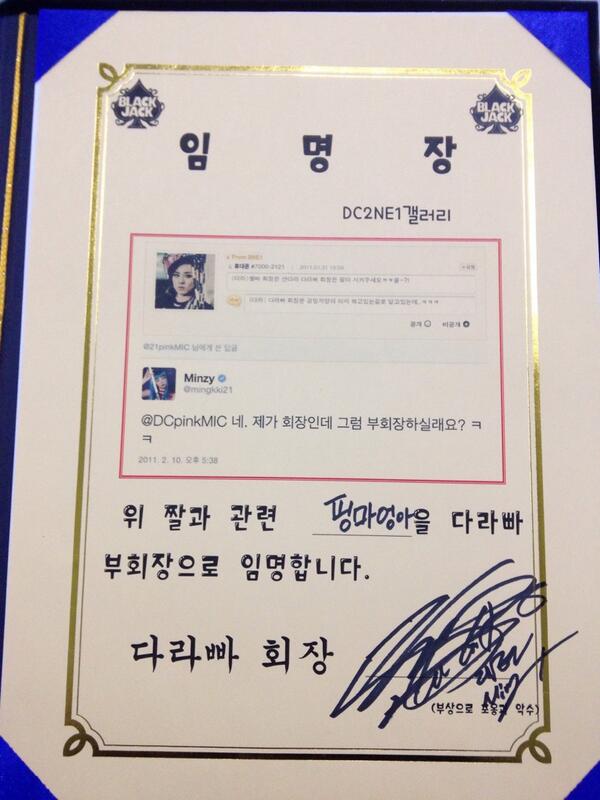 BLACK JACK
BLACK JACK
임 명 장
DC2NE1갤러리
From 2NE1
휴대폰 #7000-2121 | 2011.01.31
공개 비공개
@21pinkMIC 님에게 쓴 답글
Minzy
@mingkki21
@DCpinkMIC 네. 제가 회장인데 그럼 부회장하실래요? ㅋ
ㅋ
2011. 2. 10. 오후 5:38
위 짤과 관련 핑마엉아을 다라빠
부회장으로 임명합니다.
다라빠 회장
(부상으로 포옹과 악수)